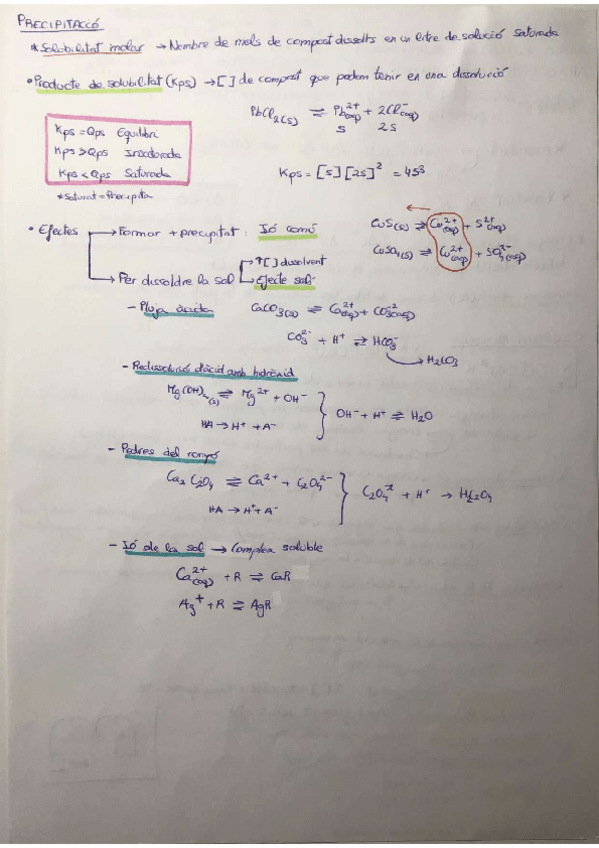 PRECIPITACIÓ
* Solubilitat molar → Nombre de mols de compost dissolts en un litre de solució saturada
• Producte de solubilitat (Kps) → [ ] de compost que podem tenir en una dissolució
PbCl2(s) ⇌ Pb2+(aq) + 2Cl-(aq)
s 2s
Kps = Qps Equilibri
Kps > Qps Insaturada
Kps < Qps Saturada
Kps = [s][2s]² = 4s³
* Saturat = Precipita
• Efectes → Formar + precipitat : Ió comú
CuS(s) ⇌ Cu2+(aq) + S2+(aq)
CuSO4(s) ⇌ Cu2+(aq) + SO2-4(aq)
→ Per dissoldre la sal → ↑[ ] dissolvent
→ Efecte salí
- Pluja àcida
CaCO3(s) ⇌ Ca2+(aq) + CO-23(aq)
CO2-3 + H+ ⇌ HCO-3
→ H2CO3
- Redissolució d'àcid amb hidròxid
Mg(OH)2(s) ⇌ Mg2+ + OH-
HA → H+ + A-
OH- + H+ ⇌ H2O
- Pedres del ronyó
Ca2C2O4 ⇌ Ca2+ + C2O42-
HA → H+ + A-
C2O4-2 + H+ → H2C2O4
- Ió de la sal → Complex soluble
Ca2+(aq) + R ⇌ CaR
Ag+ + R ⇌ AgR